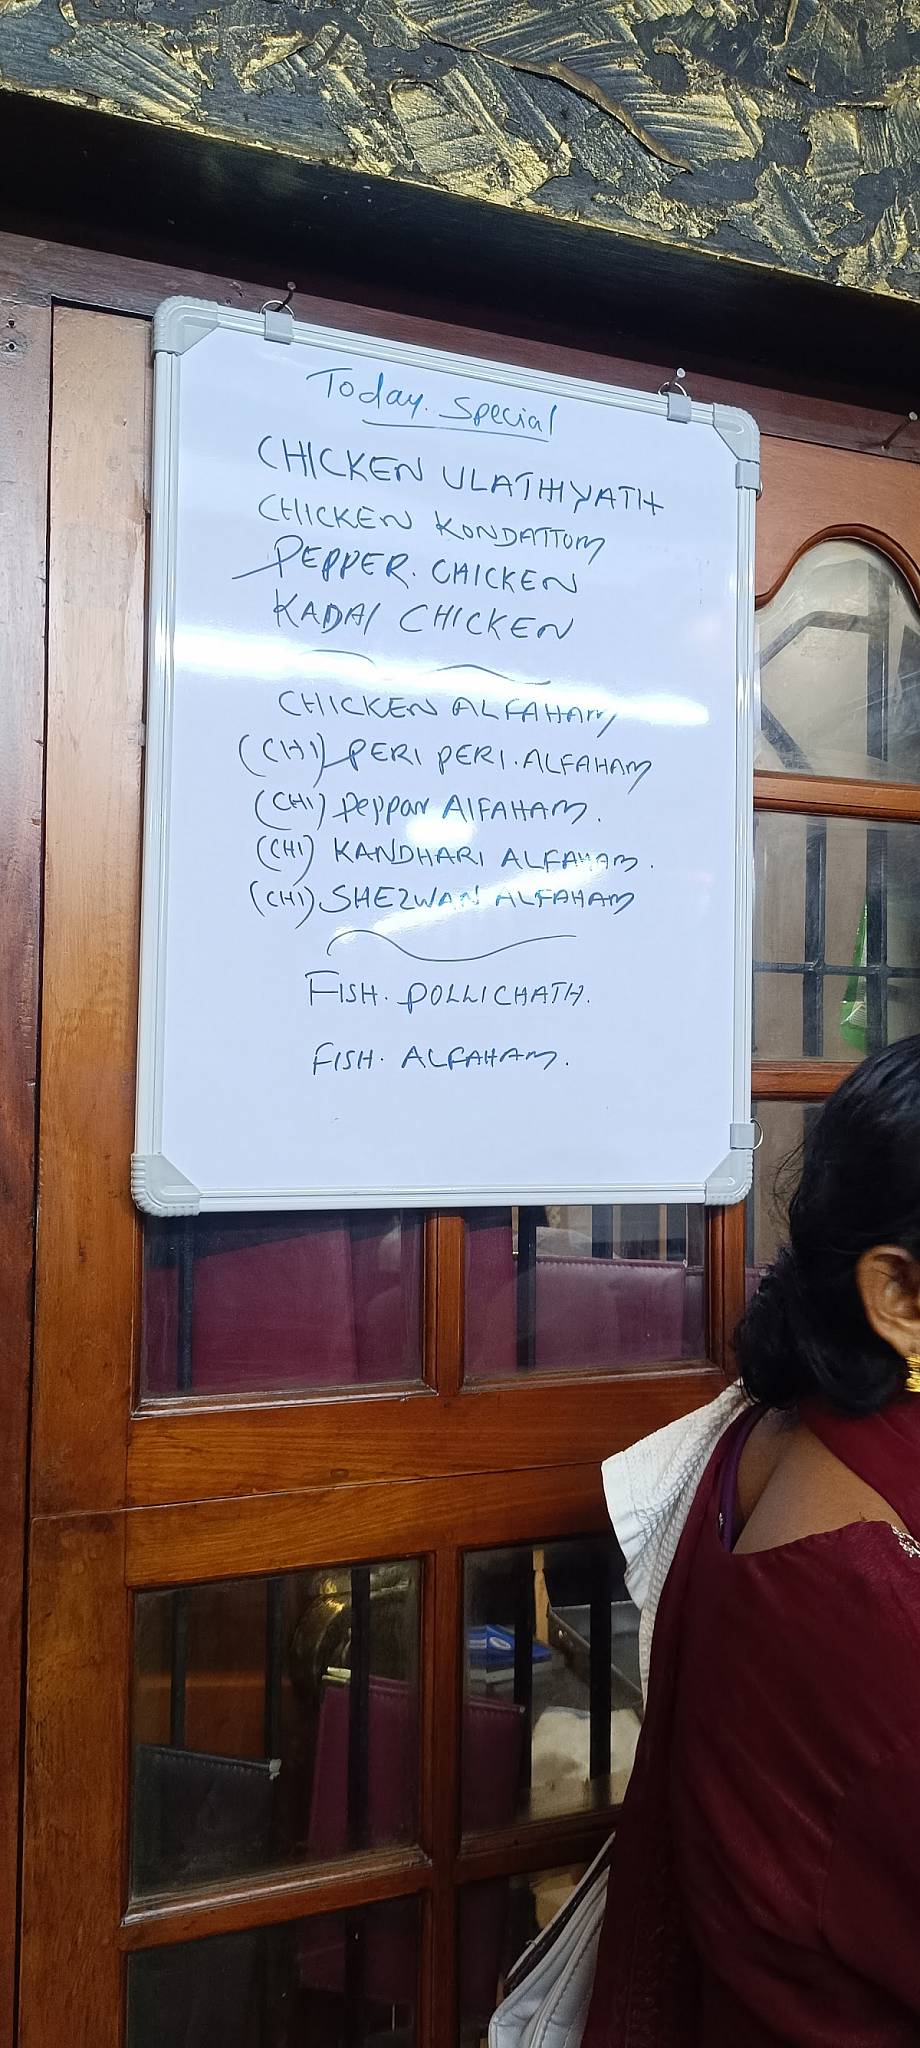 Today. Special
CHICKEN ULATHIYATH
CHICKEN KONDATTOM
PEPPER. CHICKEN
KADAI CHICKEN
CHICKEN ALFAHAM
(CHI) PERI PERI. ALFAHAM
(CHI) Peppar AlFAHAM.
(CHI) KANDHARI ALFAHAM.
(CHI) SHEZWAN ALFAHAM
FISH. POLLICHATH.
FISH. ALFAHAM.